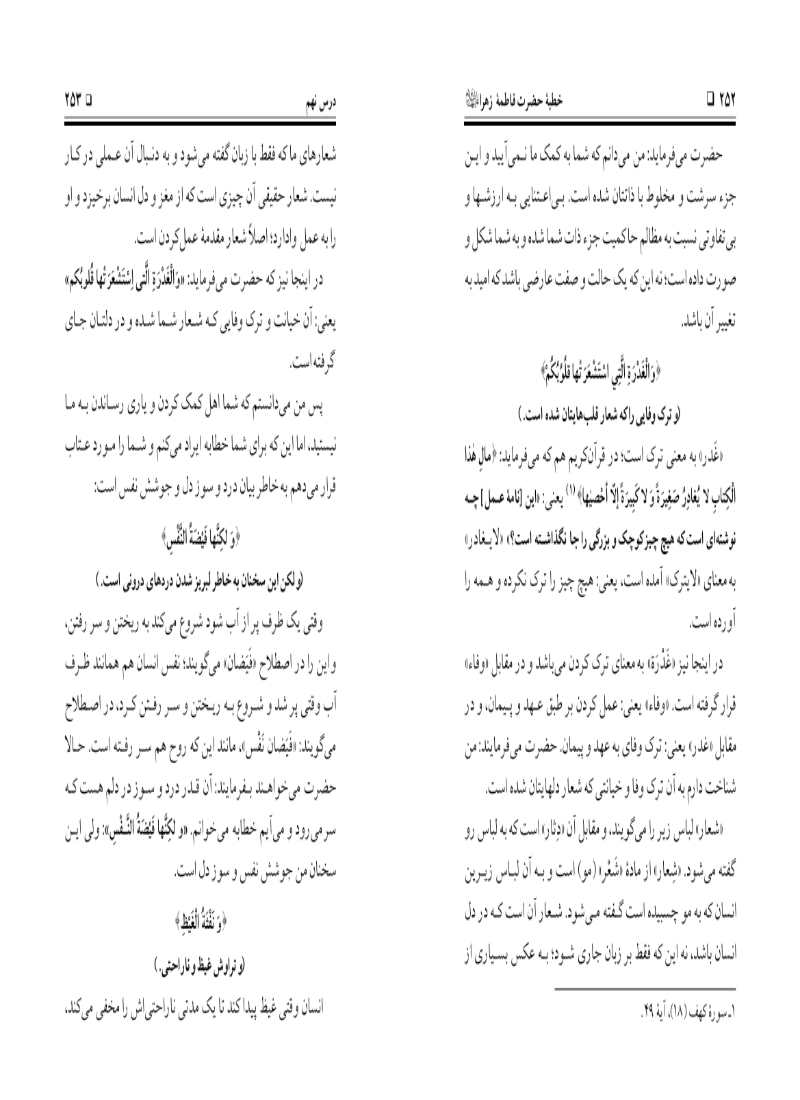 ۲۵۲ ❑ خطبهٔ حضرت فاطمهٔ زهرا
حضرت می‌فرماید: من می‌دانم که شما به کمک ما نمی‌آیید و این
جزء سرشت و مخلوط با ذاتتان شده است. بی‌اعتنایی به ارزشها و
بی‌تفاوتی نسبت به مظالم حاکمیت جزء ذات شما شده و به شما شکل و
صورت داده است؛ نه این که یک حالت و صفت عارضی باشد که امید به
تغییر آن باشد.
﴿وَ الْغَدْرَةِ الَّتِي اسْتَشْعَرَتْها قُلُوبُكُمْ﴾
(و ترک وفایی را که شعار قلب‌هایتان شده است.)
«غَدر» به معنی ترک است؛ در قرآن‌کریم هم که می‌فرماید: ﴿مالِ هٰذا
الْكِتابِ لا يُغادِرُ صَغِيرَةً وَ لا كَبِيرَةً إلّا أحْصٰيها﴾(۱) یعنی: «این [نامهٔ عمل] چه
نوشته‌ای است که هیچ چیز کوچک و بزرگی را جا نگذاشته است؟» «لایغادر»
به معنای «لایترک» آمده است، یعنی: هیچ چیز را ترک نکرده و همه را
آورده است.
در اینجا نیز «غَدْرَة» به معنای ترک کردن می‌باشد و در مقابل «وفاء»
قرار گرفته است. «وفاء» یعنی: عمل کردن بر طبق عهد و پیمان، و در
مقابل «غدر» یعنی: ترک وفای به عهد و پیمان. حضرت می‌فرمایند: من
شناخت دارم به آن ترک وفا و خیانتی که شعار دلهایتان شده است.
«شعار» لباس زیر را می‌گویند، و مقابل آن «دِثار» است که به لباس رو
گفته می‌شود. «شِعار» از مادهٔ «شَعْر» (مو) است و به آن لباس زیرین
انسان که به مو چسبیده است گفته می‌شود. شعار آن است که در دل
انسان باشد، نه این که فقط بر زبان جاری شود؛ به عکس بسیاری از
۱ـ سورهٔ کهف (۱۸)، آیهٔ ۴۹.
درس نهم ❑ ۲۵۳
شعارهای ما که فقط با زبان گفته می‌شود و به دنبال آن عملی در کار
نیست. شعار حقیقی آن چیزی است که از مغز و دل انسان برخیزد و او
را به عمل وادارد؛ اصلاً شعار مقدمهٔ عمل کردن است.
در اینجا نیز که حضرت می‌فرماید: «وَالْغَدْرَةِ الَّتي اِسْتَشْعَرَتْها قُلُوبُكم»
یعنی: آن خیانت و ترک وفایی که شعار شما شده و در دلتان جای
گرفته است.
پس من می‌دانستم که شما اهل کمک کردن و یاری رساندن به ما
نیستید، اما این که برای شما خطابه ایراد می‌کنم و شما را مورد عتاب
قرار می‌دهم به خاطر بیان درد و سوز دل و جوشش نفس است:
﴿وَ لكِنَّها فَيْضَةُ النَّفْسِ﴾
(و لکن این سخنان به خاطر لبریز شدن دردهای درونی است.)
وقتی یک ظرف پر از آب شود شروع می‌کند به ریختن و سر رفتن،
و این را در اصطلاح «فَیَضان» می‌گویند؛ نفس انسان هم همانند ظرف
آب وقتی پر شد و شروع به ریختن و سر رفتن کرد، در اصطلاح
می‌گویند: «فَیَضان نَفْس»، مانند این که روح هم سر رفته است. حالا
حضرت می‌خواهند بفرمایند: آن قدر درد و سوز در دلم هست که
سر می‌رود و می‌آیم خطابه می‌خوانم. «و لكِنَّها فَيْضَةُ النَّفْسِ»: ولی این
سخنان من جوشش نفس و سوز دل است.
﴿وَ نَفْثَةُ الْغَيْظِ﴾
(و تراوش غیظ و ناراحتی.)
انسان وقتی غیظ پیدا کند تا یک مدتی ناراحتی‌اش را مخفی می‌کند،